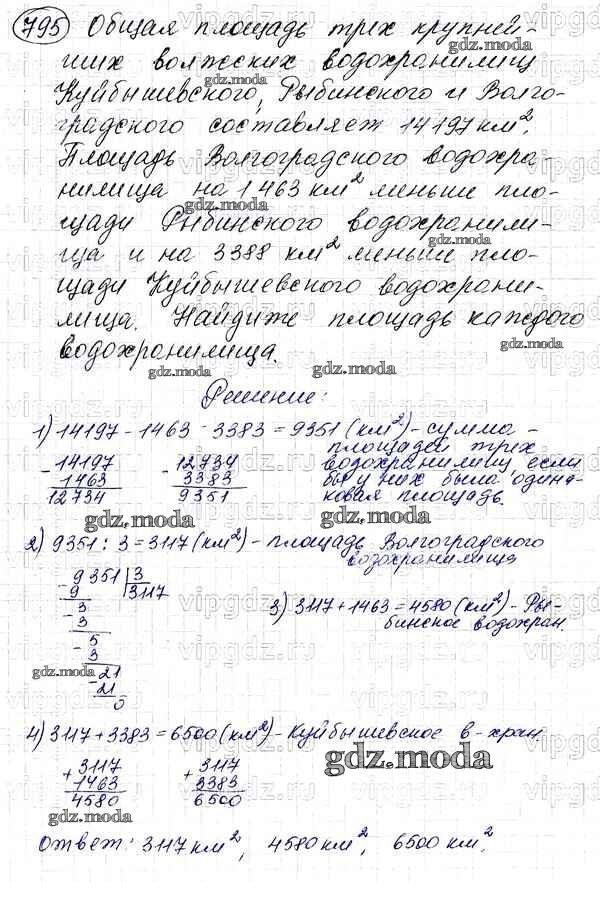 795 Общая площадь трех крупней-
ших волжских водохранилищ
Куйбышевского, Рыбинского и Волго-
градского составляет 14197 км².
Площадь Волгоградского водохра-
нилища на 1463 км² меньше пло-
щади Рыбинского водохранили-
ща и на 3388 км² меньше пло-
щади Куйбышевского водохрани-
лища. Найдите площадь каждого
водохранилища.
Решение:
1) 14197 - 1463 - 3383 = 9351 (км²) - сумма
площадей трех
водохранилищ, если
бы у них была одина-
ковая площадь.
- 14197
1463
12734
- 12734
3383
9351
2) 9351 : 3 = 3117 (км²) - площадь Волгоградского
водохранилища
- 9351 | 3
9 3117
3
- 3
5
- 3
21
- 21
0
3) 3117 + 1463 = 4580 (км²) - Ры-
бинское водохран.
4) 3117 + 3383 = 6500 (км²) - Куйбышевское в-хран
+ 3117
1463
4580
+ 3117
3383
6500
Ответ: 3117 км², 4580 км², 6500 км².
gdz.moda
vipgdz.ru